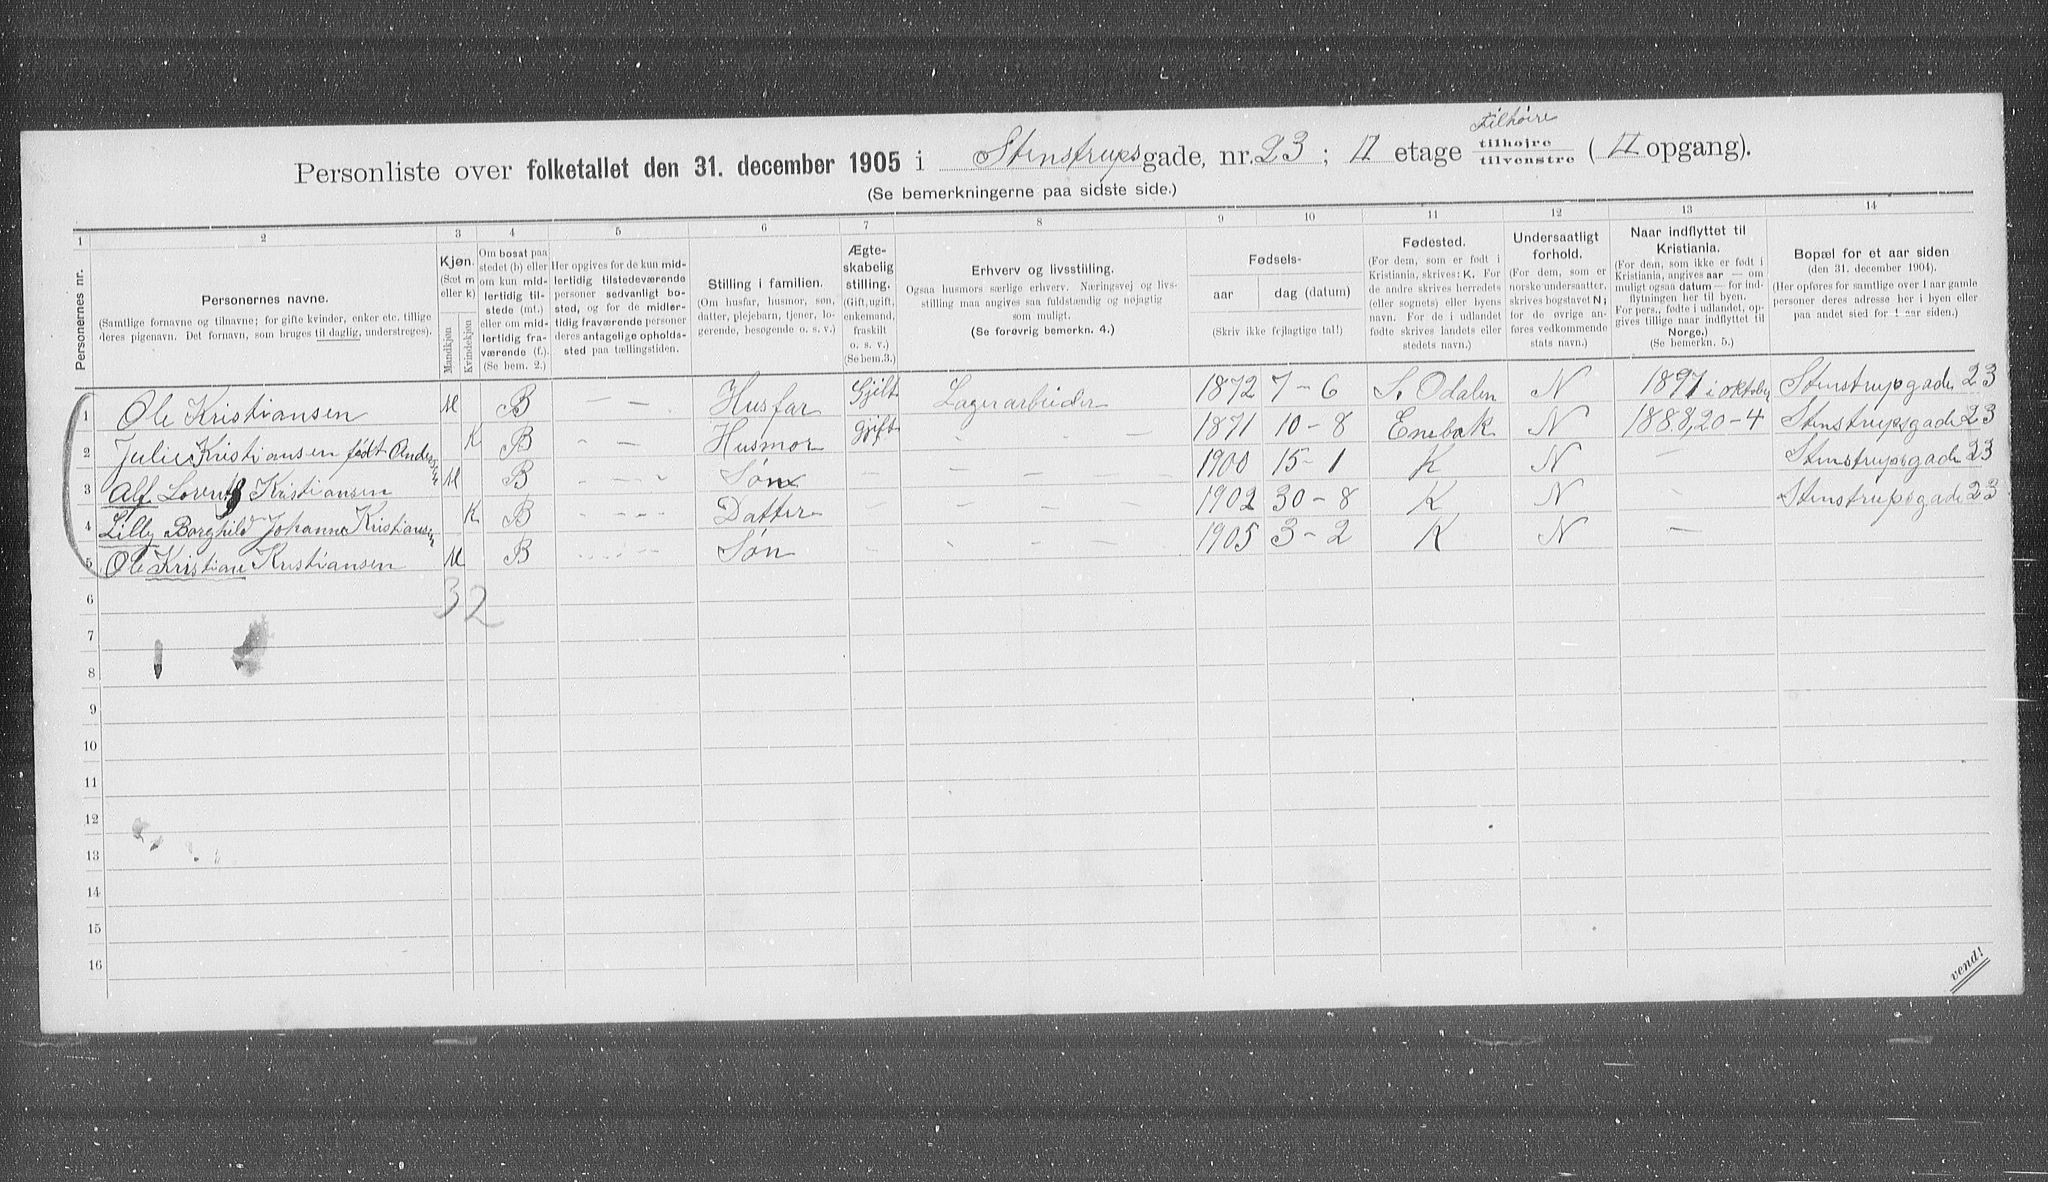 Personliste over folketallet den 31. december 1905 i Stenstrupsgade, nr. 23; II etage tilhøire tilhøjre tilvenstre (II opgang).
(Se bemerkningerne paa sidste side.)
1 2 3 4 5 6 7 8 9 10 11 12 13 14
Personernes nr.
Personernes navne.
(Samtlige fornavne og tilnavne; for gifte kvinder, enker etc. tillige deres pigenavn. Det fornavn, som bruges til daglig, understreges).
Kjøn. (Sæt m eller k) Mandkjøn Kvindekjøn
Om bosat paa stedet (b) eller om kun midlertidig tilstede (mt.) eller om midlertidig fraværende (f.). (Se bem. 2.)
Her opgives for de kun midlertidig tilstedeværende personer sedvanlig bosted, og for de midlertidig fraværende personer deres antagelige opholdssted paa tællingstiden.
Stilling i familien.
(Om husfar, husmor, søn, datter, plejebarn, tjener, logerende, besøgende o. s. v.)
Ægteskabelig stilling.
(Gift, ugift, enkemand, fraskilt o. s. v.) (Se bem. 3.)
Erhverv og livsstilling.
Ogsaa husmors særlige erhverv. Næringsvej og livsstilling maa angives saa fuldstændig og nøjagtig som muligt.
(Se forøvrig bemerkn. 4.)
Fødsels-
aar dag (datum)
(Skriv ikke fejlagtige tal!)
Fødested.
(For dem, som er født i Kristiania, skrives: K. For de andre skrives herredets (eller sognets) eller byens navn. For de i udlandet fødte skrives landets eller stedets navn.)
Undersaatligt forhold.
(For dem, som er norske undersaatter, skrives bogstavet N; for de øvrige anføres vedkommende stats navn.)
Naar indflyttet til Kristiania.
(For dem, som ikke er født i Kristiania, angives aar — om muligt ogsaa datum — for indflytningen her til byen. For pers., fødte i udlandet, opgives tillige naar indflyttet til Norge.)
(Se bemerkn. 5.)
Bopæl for et aar siden
(den 31. december 1904).
(Her opføres for samtlige over 1 aar gamle personer deres adresse her i byen eller paa andet sted for 1 aar siden.)
1 Ole Kristiansen M B — — Husfar Gjift Lagerarbeider 1872 7-6 S. Odalen N 1897 i oktober Stenstrupsgade 23
2 Julie Kristiansen født Andersen K B — — Husmor gjift - - - 1871 10-8 Enebak N 1888, 20-4 Stenstrupsgade 23
3 Alf Lorentz Kristiansen M B - - - Søn 1900 15-1 K N — Stenstrupsgade 23
4 Lilly Borghild Johanne Kristiansen K B - - - Datter 1902 30-8 K N - Stenstrupsgade 23
5 Ole Kristian Kristiansen M B - - - Søn - - - 1905 3-2 K N —
6 32
7
8
9
10
11
12
13
14
15
16
vend!